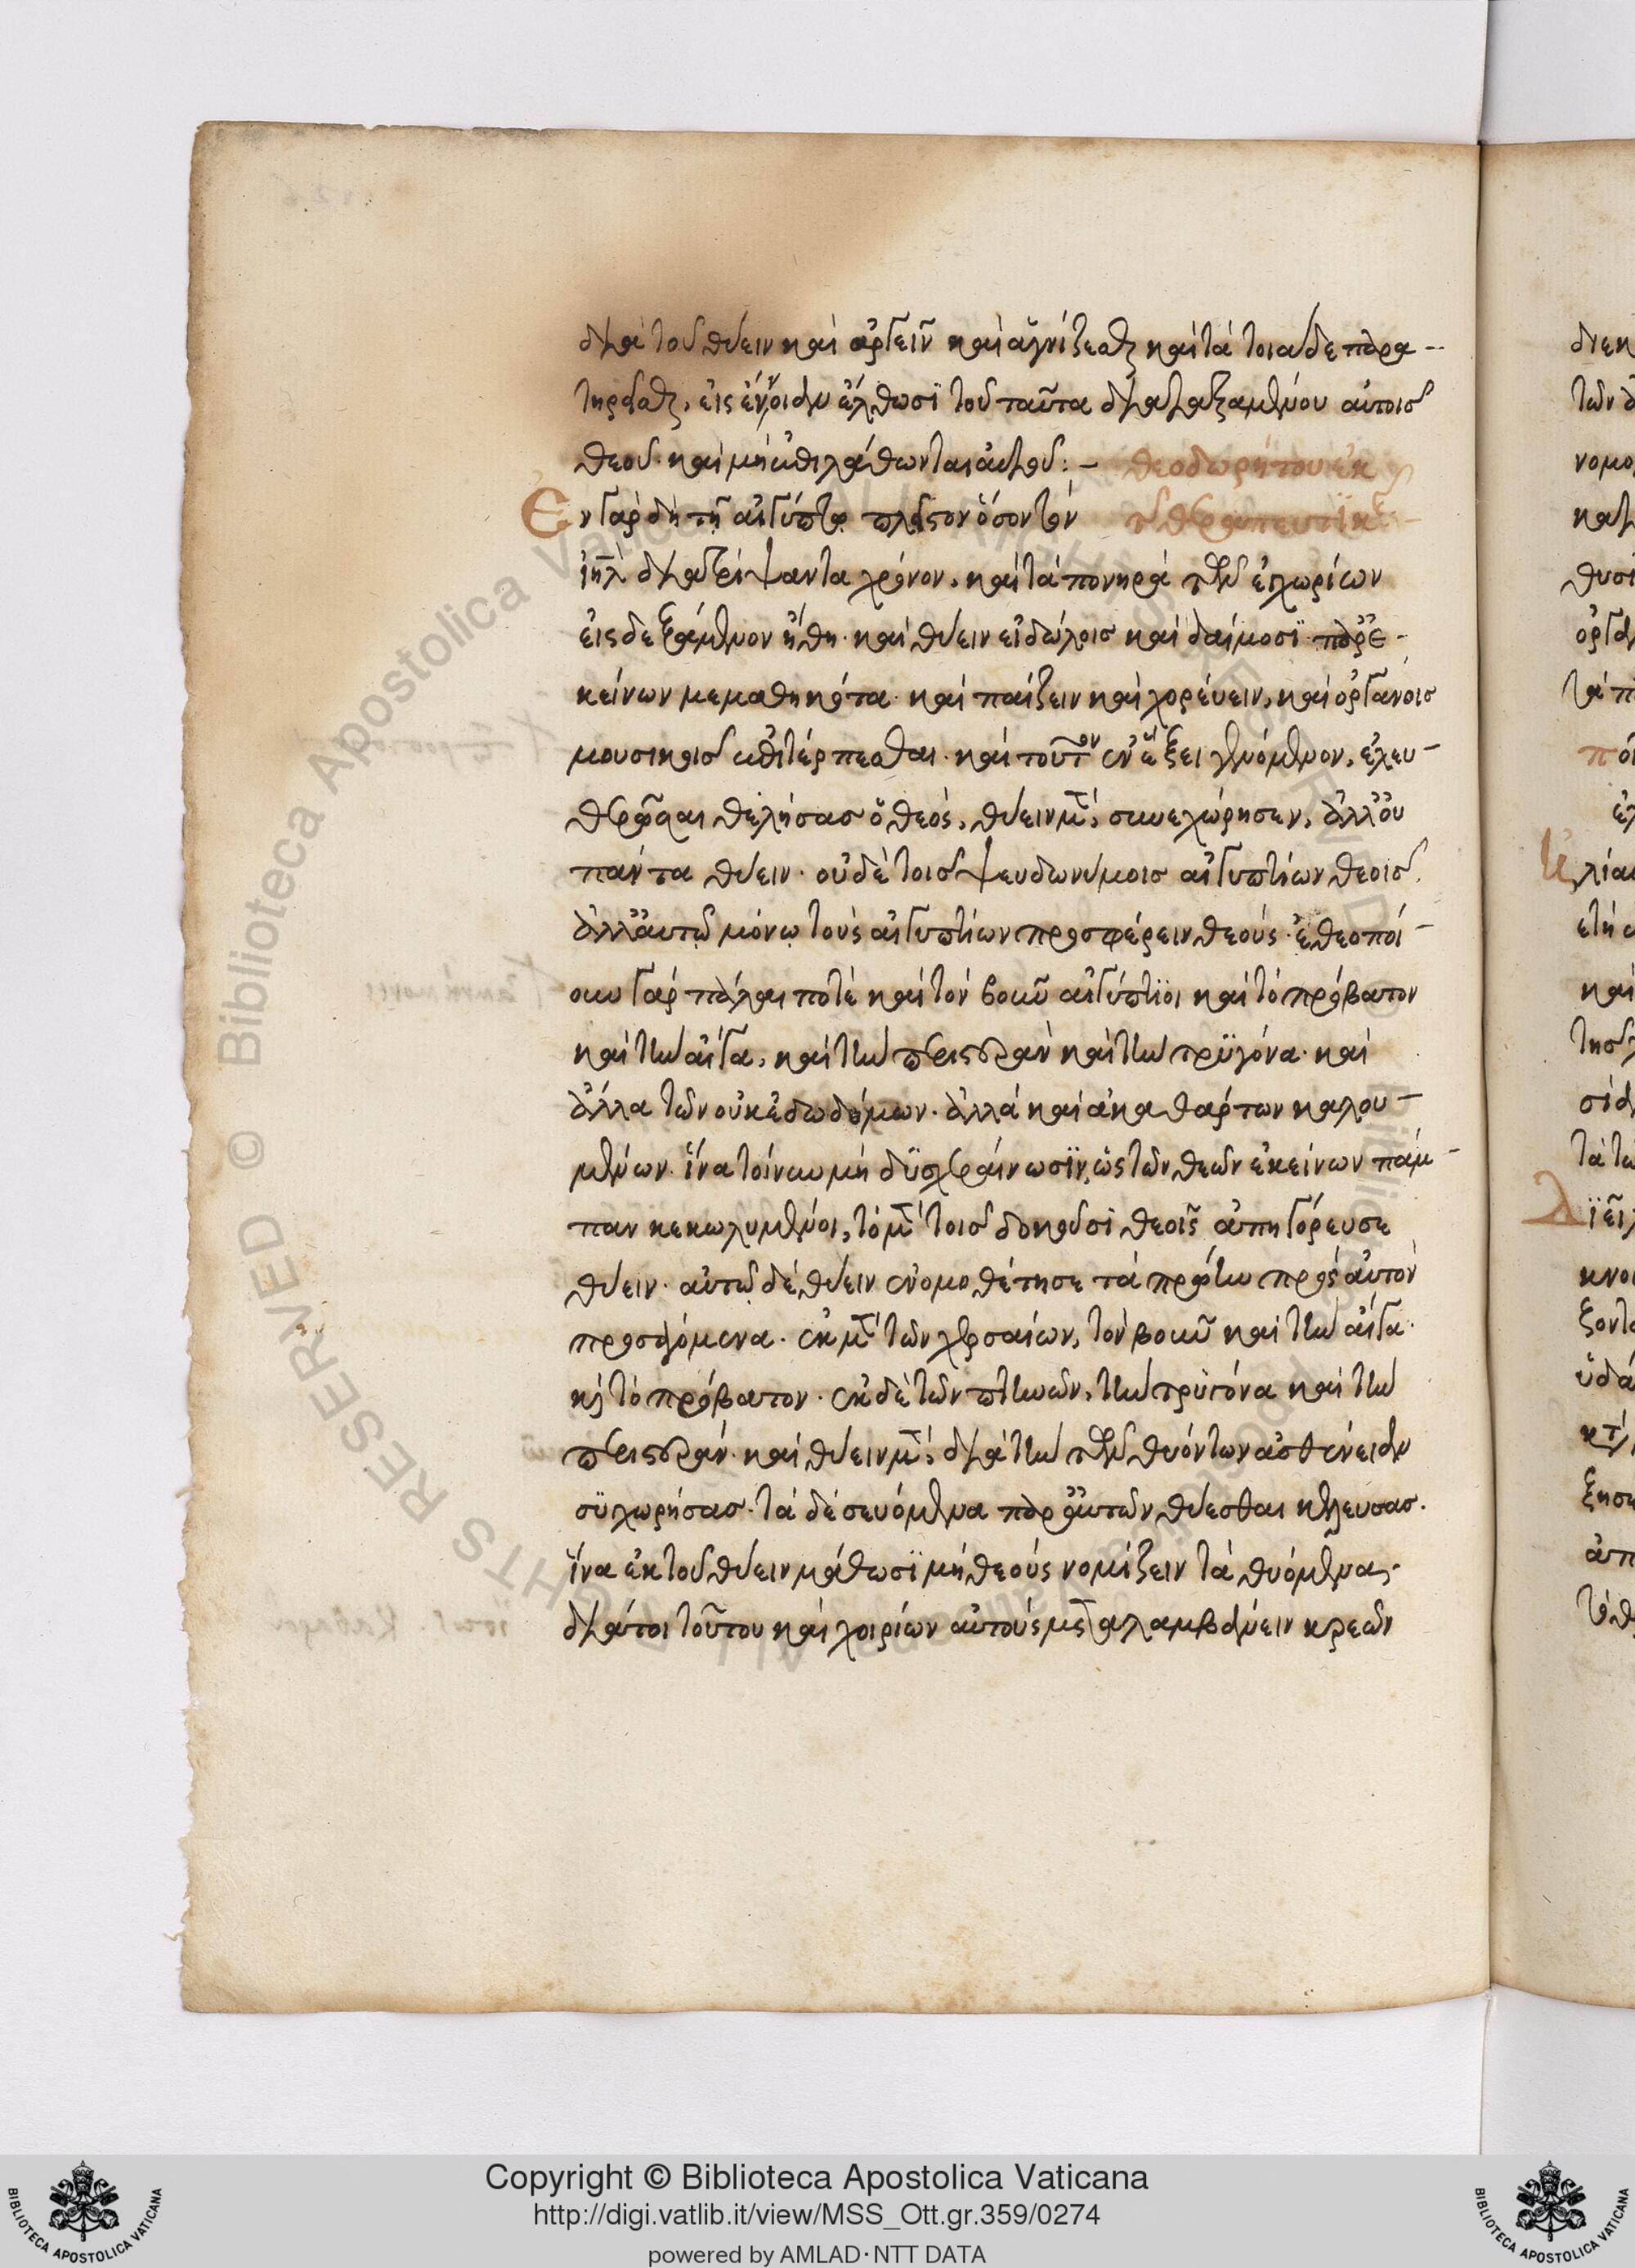 διὰ τοῦ θύειν καὶ ἀργεῖν καὶ ἁγνίζεσθαι καὶ τὰ τοιάδε παρα-
τηρεῖσθαι, εἰς ἔννοιαν ἔλθωσι τοῦ ταῦτα διαταξαμένου αὐτοῖς
θεοῦ· καὶ μὴ ἐπιλάθωνται αὐτοῦ:– θεοδωρήτου ἐκ
Ἐν γὰρ δὴ τῇ αἰγύπτῳ πλεῖστον ὅσον τὸν τῶν θεραπευτικῶν–
ἰηλ διατρίψαντα χρόνον, καὶ τὰ πονηρὰ τῶν ἐγχωρίων
εἰσδεξάμενον ἤθη· καὶ θύειν εἰδώλοις καὶ δαίμοσι παρ' ἐ-
κείνων μεμαθηκότα· καὶ παίζειν καὶ χορεύειν, καὶ ὀργάνοις
μουσικοῖς ἐπιτέρπεσθαι· καὶ τούτων ἐν ἕξει γενόμενον, ἐλευ-
θερῶσαι θελήσας ὁ θεός, θύειν μὲν συνεχώρησεν, ἀλλ' οὐ
πάντα θύειν· οὐδὲ τοῖς ψευδωνύμοις αἰγυπτίων θεοῖς.
ἀλλ' αὐτῷ μόνῳ τοὺς αἰγυπτίων προσφέρειν θεούς· ἐθεοποί-
ουν γὰρ πάλαι ποτὲ καὶ τὸν βοῦν αἰγύπτιοι καὶ τὸ πρόβατον
καὶ τὴν αἶγα, καὶ τὴν περιστερὰν καὶ τὴν τρυγόνα· καὶ
ἄλλα τῶν οὐκ ἐδωδίμων· ἀλλὰ καὶ ἀκαθάρτων καλου-
μένων· ἵνα τοίνυν μὴ δυσχεραίνωσιν, ὡς τῶν θεῶν ἐκείνων πάμ-
παν κεκωλυμένοι, τὸ μὲν τοῖς δοκοῦσι θεοῖς ἀπηγόρευσε
θύειν· αὐτῷ δὲ θύειν ἐνομοθέτησε τὰ πρώην πρὸς αὐτῶν
προσαγόμενα· ἐκ μὲν τῶν χερσαίων, τὸν βοῦν καὶ τὴν αἶγα·
καὶ τὸ πρόβατον· ἐκ δὲ τῶν πτηνῶν, τὴν τρυγόνα καὶ τὴν
περιστεράν· καὶ θύειν μὲν διὰ τὴν τῶν θυόντων ἀσθένειαν
συγχωρήσας· τὰ δὲ σεβόμενα παρ' αὐτῶν θύεσθαι κελεύσας.
ἵνα ἐκ τοῦ θύειν μάθωσι μὴ θεοὺς νομίζειν τὰ θυόμενα,
διάτοι τοῦτου καὶ χοιρίων αὐτοὺς μεταλαμβάνειν κρεῶν
Copyright © Biblioteca Apostolica Vaticana
http://digi.vatlib.it/view/MSS_Ott.gr.359/0274
powered by AMLAD·NTT DATA